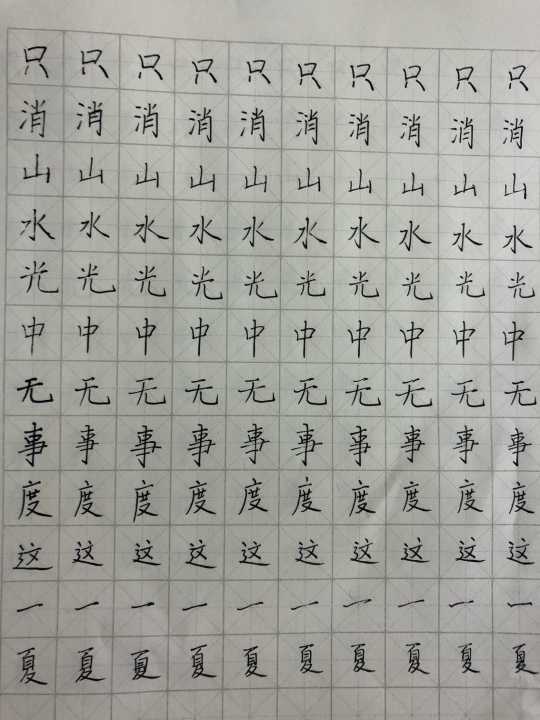 只只只只只只只只只只
消消消消消消消消消消
山山山山山山山山山山
水水水水水水水水水水
光光光光光光光光光光
中中中中中中中中中中
无无无无无无无无无无
事事事事事事事事事事
度度度度度度度度度度
这这这这这这这这这这
一一一一一一一一一一
夏夏夏夏夏夏夏夏夏夏